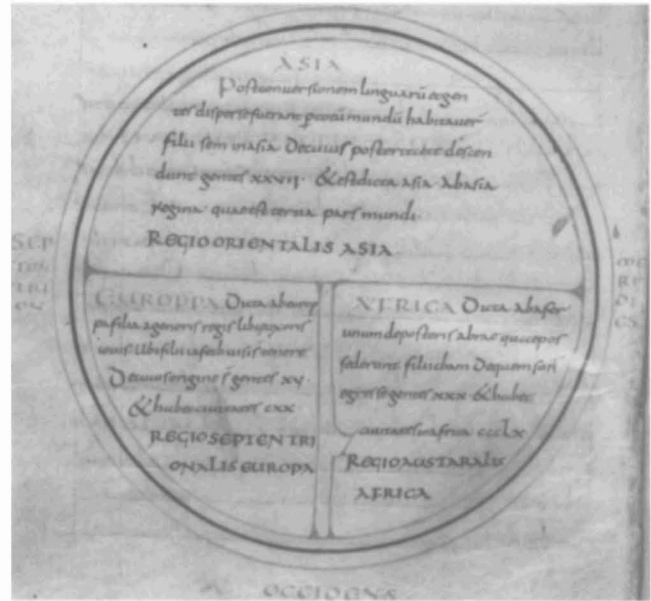 ASIA
Post conversionem linguarū & gen
tes disperse fuerant per totū mundū habitaver
filii sem in asia De cuius posteritate descen
dunt gentes XXVII. & est dicta asia ab asia
regina quae est tertia pars mundi
REGIO ORIENTALIS ASIA
SEP
TEN
TRI
ME
RI
DI
ES
EUROPPA Dicta ab europ
pa filia agenoris regis libiae
iovis Ubi filii iafeth visi sunt
De cuius origine s gentes XV.
& habet civitates CXX
REGIO SEPTENTRI
ONALIS EUROPA
AFRICA Dicta ab afer
unum de posteris abrae qui
sederunt filii cham De quem sunt
egressę gentes XXX & habet
civitates in africa CCCLX
REGIO AUSTARALIS
AFRICA
OCCIDENS